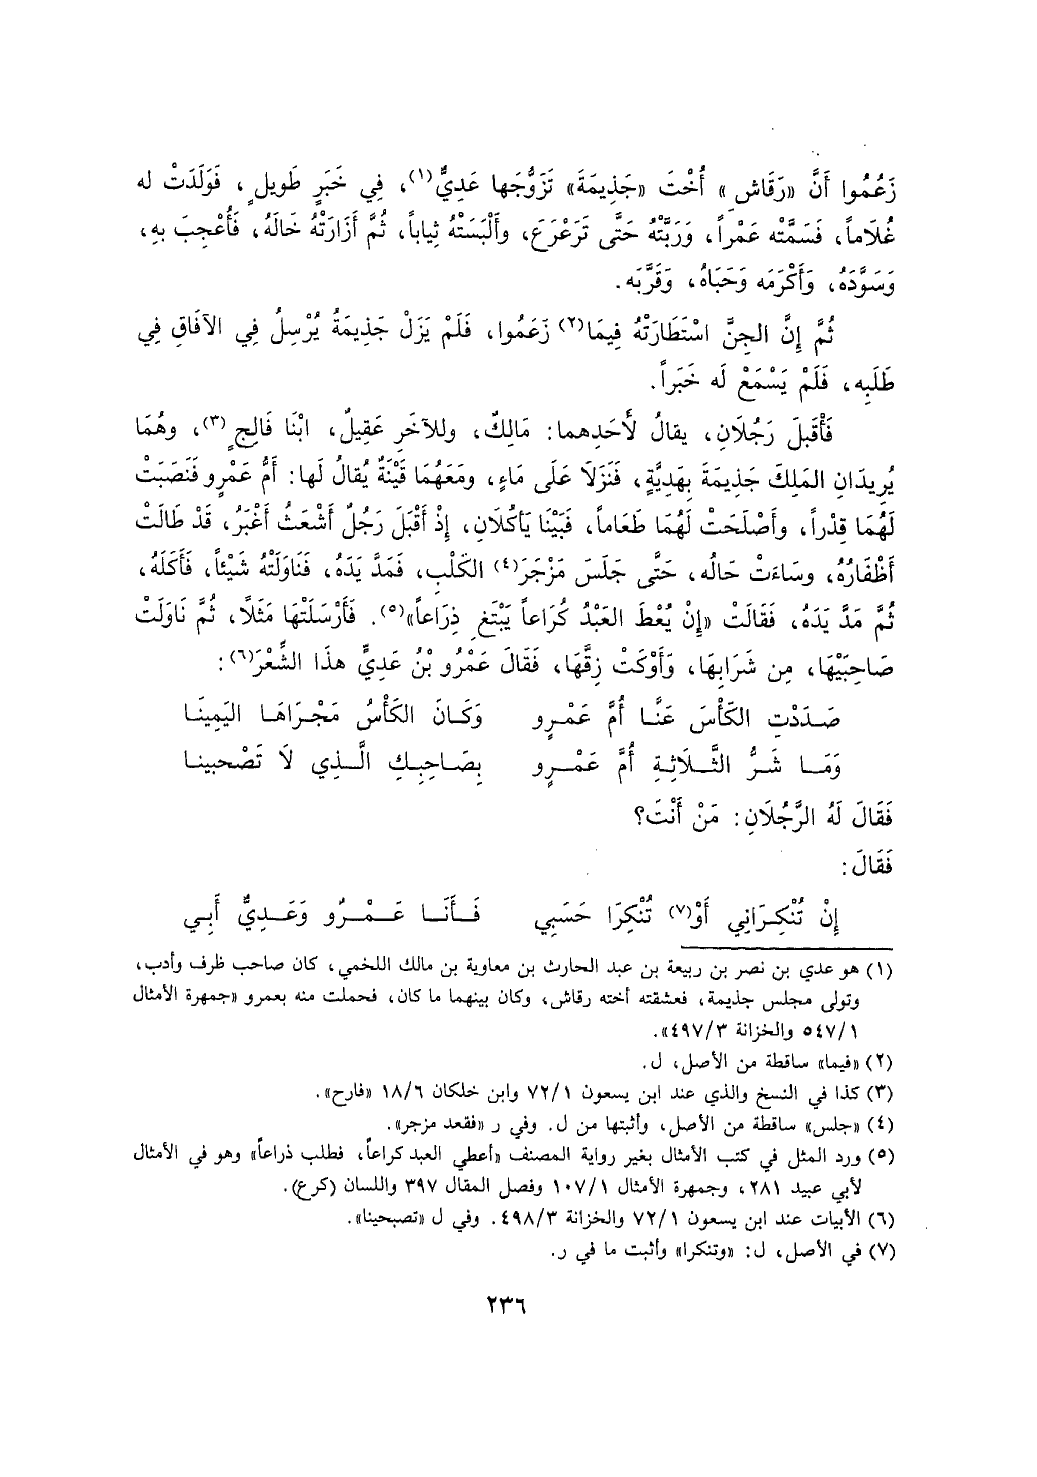 زَعُمُوا أَنَّ «رَقَاشِ» أُخْتَ «جَذِيمَةَ» تَزَوَّجَها عَدِيٌّ(١)، فِي خَبَرٍ طَويلٍ، فَوَلَدَتْ له
غُلَاماً، فَسَمَّتْه عَمْراً، وَرَبَّتْهُ حَتَّى تَرَعْرَعَ، وأَلْبَسَتْهُ ثِياباً، ثُمَّ أَزَارَتْهُ خالَهُ، فَأُعْجِبَ بهِ،
وَسَوَّدَهُ، وَأَكْرَمَه وَحَبَاهُ، وَقَرَّبَه.
ثُمَّ إِنَّ الجِنَّ اسْتَطَارَتْهُ فِيمَا(٢) زَعَمُوا، فَلَمْ يَزَلْ جَذِيمَةُ يُرْسِلُ فِي الآفَاقِ فِي
طَلَبِه، فَلَمْ يَسْمَعْ لَه خَبَراً.
فَأَقبَلَ رَجُلَانِ، يقالُ لأَحَدِهما: مَالِكٌ، وللآخَرِ عَقِيلٌ، ابْنَا فَالِجٍ(٣)، وهُمَا
يُرِيدَانِ المَلِكَ جَذِيمَةَ بِهَدِيَّةٍ، فَنَزَلَا عَلَى مَاءٍ، وَمَعَهُمَا قَيْنَةٌ يُقالُ لَها: أُمُّ عَمْرٍو فَنَصَبَتْ
لَهُمَا قِدْراً، وأَصْلَحَتْ لَهُمَا طَعَاماً، فَبَيْنَا يَأكُلَانِ، إِذْ أَقْبَلَ رَجُلٌ أَشْعَثُ أَغْبَرُ، قَدْ طَالَتْ
أَظْفَارُهُ، وسَاءَتْ حَالُه، حَتَّى جَلَسَ مَزْجَرَ(٤) الكَلْبِ، فَمَدَّ يَدَهُ، فَنَاوَلَتْهُ شَيْئاً، فَأَكَلَهُ،
ثُمَّ مَدَّ يَدَهُ، فَقَالَتْ «إِنْ يُعْطَ العَبْدُ كُرَاعاً يَبْتَغِ ذِرَاعاً»(٥). فَأَرْسَلَتْهَا مَثَلًا، ثُمَّ نَاوَلَتْ
صَاحِبَيْهَا، مِن شَرَابِهَا، وَأَوْكَتْ زِقَّهَا، فَقَالَ عَمْرُو بْنُ عَدِيٍّ هذَا الشِّعْرَ(٦):
صَدَدْتِ الكَأْسَ عَنَّا أُمَّ عَمْرٍو وَكَانَ الكَأْسُ مَجْرَاهَا اليَمِينَا
وَمَا شَرُّ الثَّلَاثِةِ أُمَّ عَمْرٍو بِصَاحِبِكِ الَّذِي لَا تَصْحَبينا
فَقَالَ لَهُ الرَّجُلَانِ: مَنْ أَنْتَ؟
فَقَالَ:
إِنْ تُنْكِرَانِي أَوْ(٧) تُنْكِرَا حَسَبِي فَأَنَا عَمْرُو وَعَدِيٌّ أَبِي
(١) هو عدي بن نصر بن ربيعة بن عبد الحارث بن معاوية بن مالك اللخمي، كان صاحب ظرف وأدب،
وتولى مجلس جذيمة، فعشقته أخته رقاش، وكان بينهما ما كان، فحملت منه بعمرو «جمهرة الأمثال
٥٤٧/١ والخزانة ٤٩٧/٣».
(٢) «فيما» ساقطة من الأصل، ل.
(٣) كذا في النسخ والذي عند ابن يسعون ٧٢/١ وابن خلكان ١٨/٦ «فارح».
(٤) «جلس» ساقطة من الأصل، وأثبتها من ل. وفي ر «فقعد مزجر».
(٥) ورد المثل في كتب الأمثال بغير رواية المصنف «أعطي العبد كراعاً، فطلب ذراعاً» وهو في الأمثال
لأبي عبيد ٢٨١، وجمهرة الأمثال ١٠٧/١ وفصل المقال ٣٩٧ واللسان (كرع).
(٦) الأبيات عند ابن يسعون ٧٢/١ والخزانة ٤٩٨/٣. وفي ل «تصبحينا».
(٧) في الأصل، ل: «وتنكرا» وأثبت ما في ر.
٢٣٦